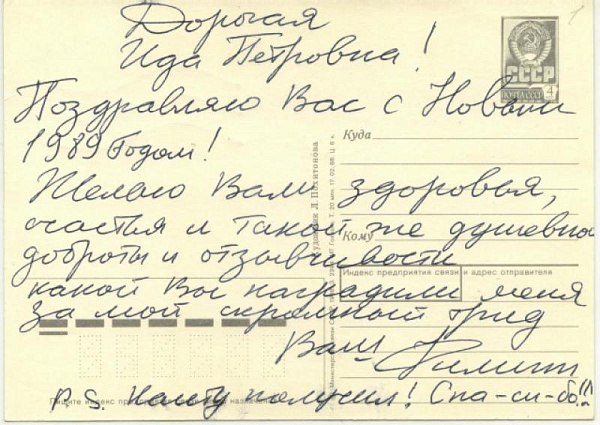 Дорогая
Ида Петровна!
Поздравляю Вас с Новым
1989 Годом!
Желаю Вам здоровья,
счастья и такой же душевной
доброты и отзывчивости
какой Вы наградили меня
за мой скромный труд
Ваш
P.S. получил! Спа-си-бо!!!
СССР
ПОЧТА СССР 4
Куда
Кому
Индекс предприятия связи и адрес отправителя
Пишите индекс предприятия связи места назначения
Художник Л. Похитонова